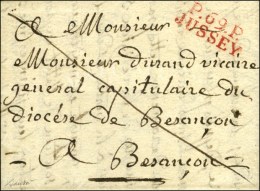 A Monsieur
P.69.P.
JUSSEY.
Monsieur durand vicaire
général capitulaire du
diocése de Besançon
A Besançon